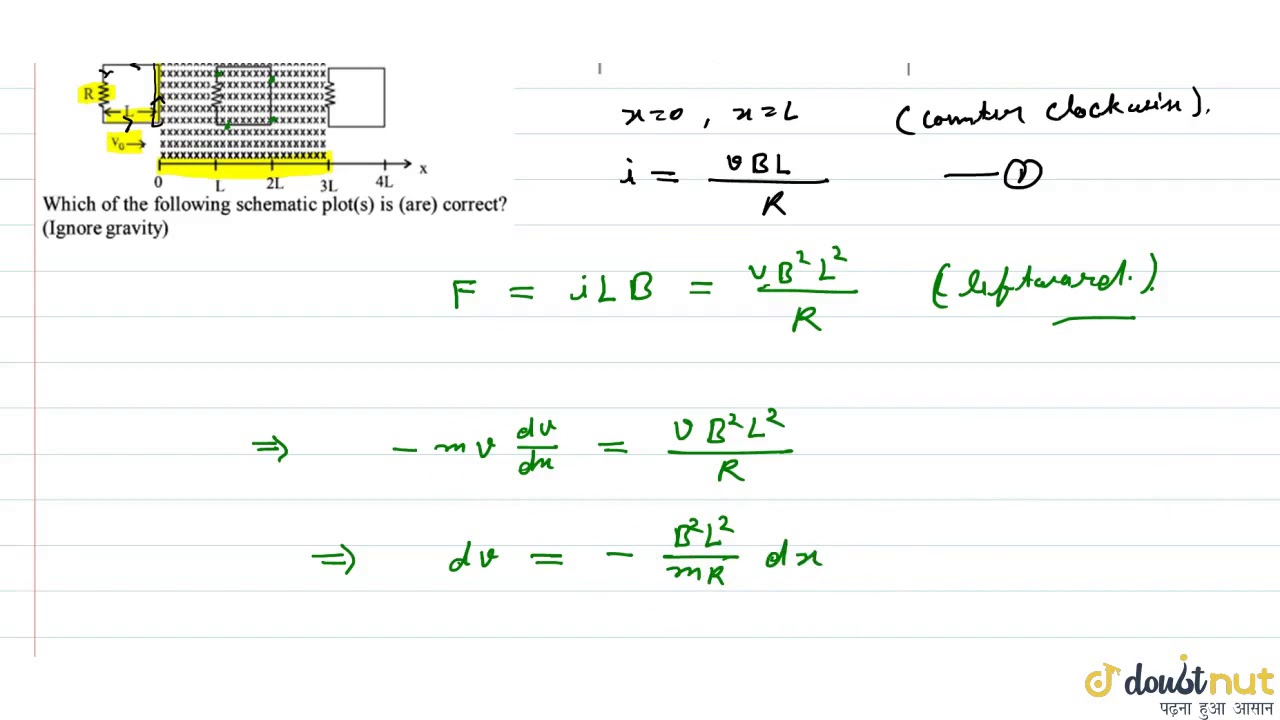 R
L
v₀→
0 L 2L 3L 4L x
Which of the following schematic plot(s) is (are) correct?
(Ignore gravity)
x=0 , x=L (counter clockwise).
i = vBL/R —①
F = iLB = vB²L²/R (leftward.).
⇒ -mv dv/dx = vB²L²/R
⇒ dv = - B²L²/mR dx
doubtnut
पढ़ना हुआ आसान